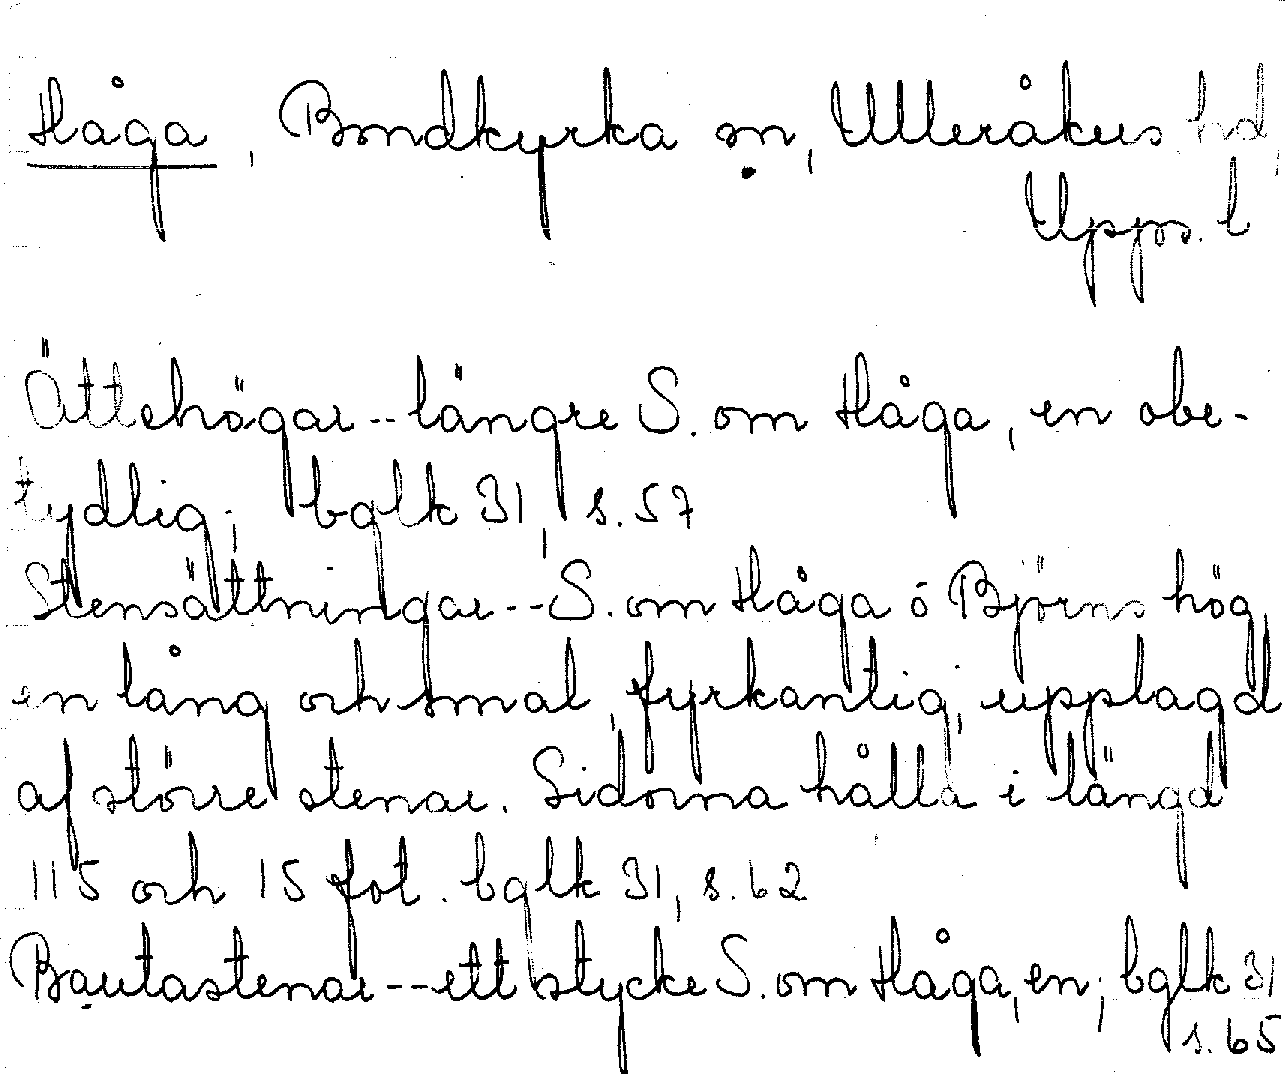 Håga, Bondkyrka sn, Ulleråkers hd,
Upps. l
Ättehögar--längre S. om Håga, en obe-
tydlig; bglk 31, s. 57
Stensättningar--S. om Håga ö Björns hög
en lång och smal, fyrkantig, upplagd
af större stenar. Sidorna hålla i längd
115 och 15 fot. bglk 31, s. 62
Bautastenar--ett stycke S. om Håga, en; bglk 31
s. 65